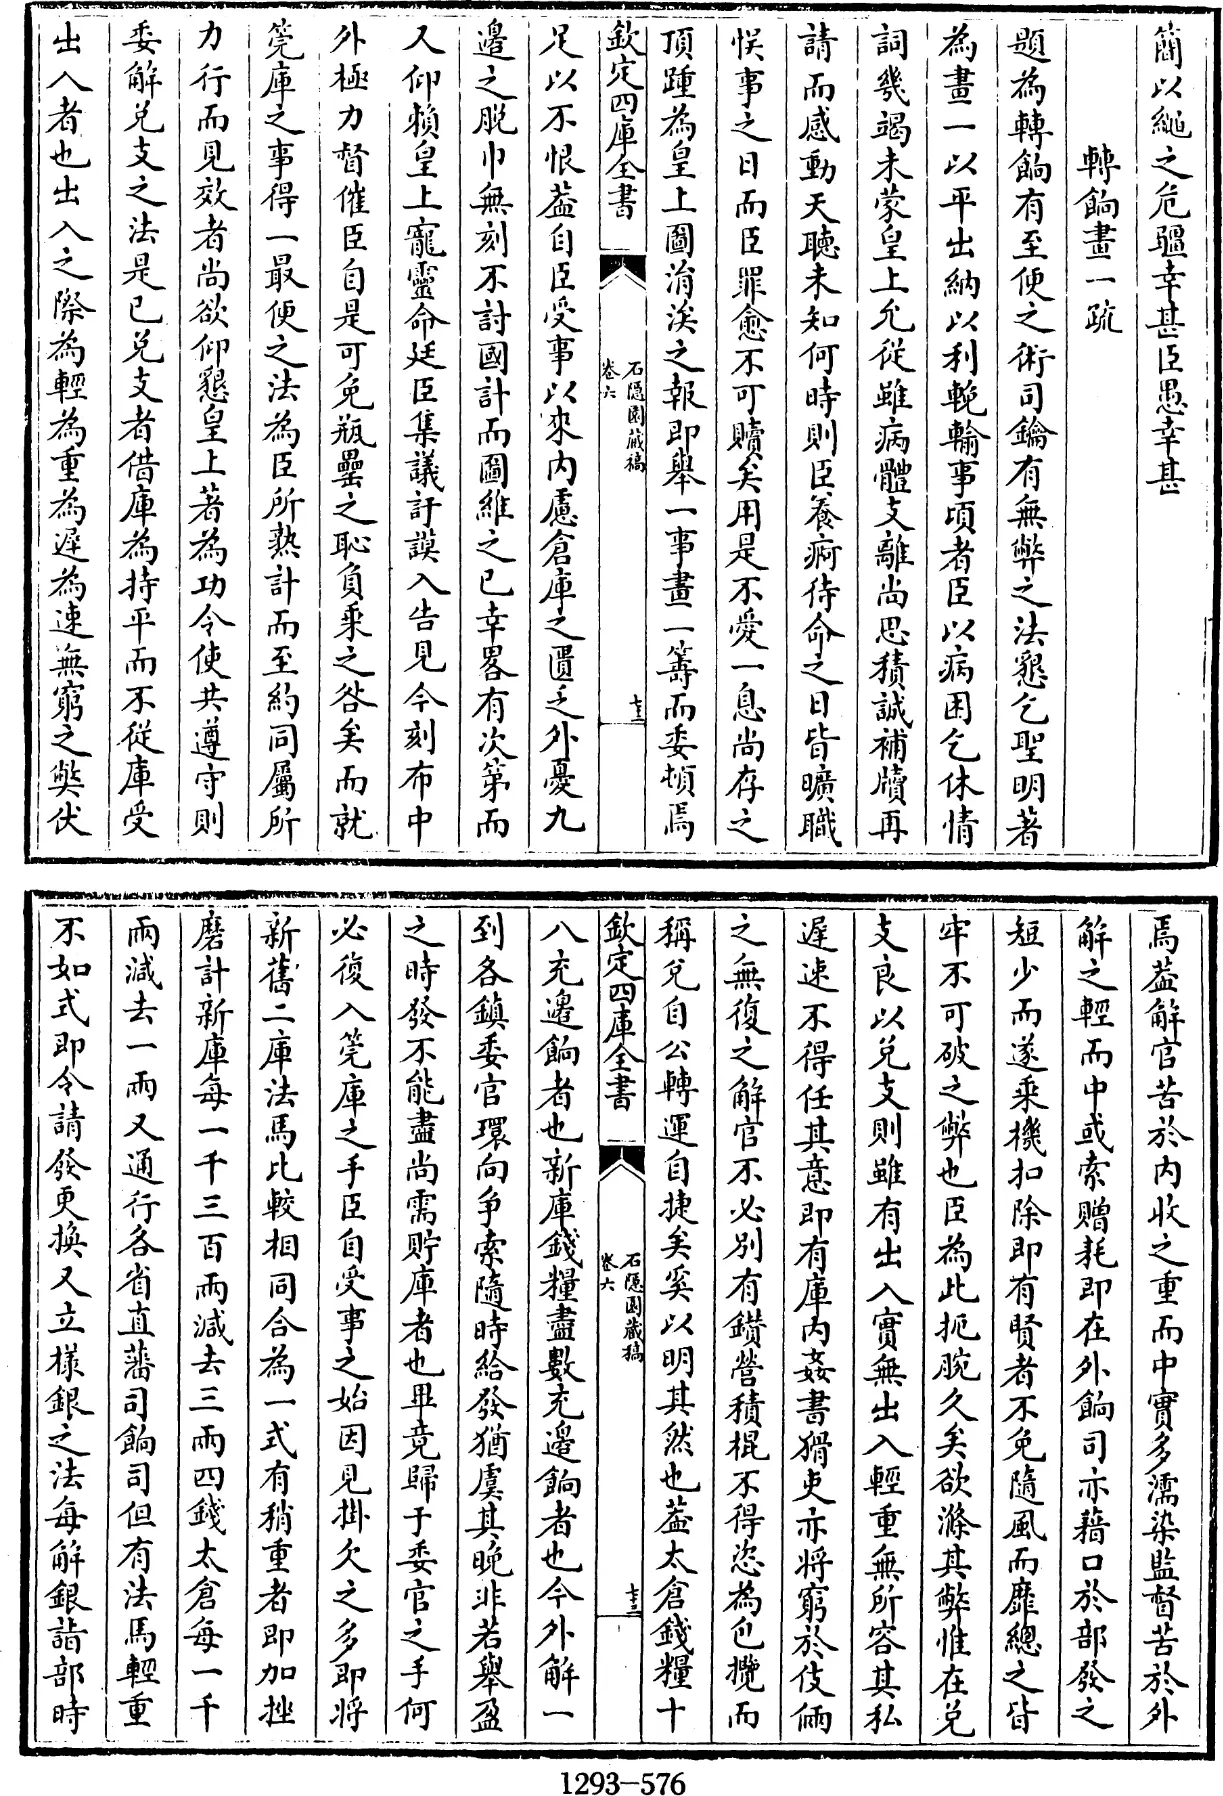 簡以繩之危疆幸甚臣愚幸甚
轉餉畫一疏
題為轉餉有至便之術司鑰有無弊之法懇乞聖明著
為畫一以平出納以利輓輸事頃者臣以病困乞休情
詞幾竭未蒙皇上允從雖病體支離尚思積誠補牘再
請而感動天聽未知何時則臣養痾待命之日皆曠職
悞事之日而臣罪愈不可贖矣用是不愛一息尚存之
頂踵為皇上圖涓涘之報即舉一事畫一籌而委頓焉
欽定四庫全書
石隱園藏稿
卷六
足以不恨葢自臣受事以來内慮倉庫之匱乏外憂九
邉之脫巾無刻不討國計而圖維之已幸畧有次第而
又仰賴皇上寵靈命廷臣集議訏謨入告見今刻布中
外極力督催臣自是可免瓶罍之恥負乘之咎矣而就
筦庫之事得一最便之法為臣所熟計而至約同屬所
力行而見效者尚欲仰懇皇上著為功令使共遵守則
委解兑支之法是已兑支者借庫為持平而不從庫受
出入者也出入之際為輕為重為遲為速無窮之獘伏
焉葢解官苦於内收之重而中實多濡染監督苦於外
解之輕而中或索贈耗即在外餉司亦藉口於部發之
短少而遂乘機扣除即有賢者不免隨風而靡總之皆
牢不可破之弊也臣為此扼腕久矣欲滌其弊惟在兑
支良以兑支則雖有出入實無出入輕重無所容其私
遲速不得任其意即有庫内姦書猾吏亦將窮於伎倆
之無復之解官不必别有鑚營積棍不得恣為包攬而
稱兑自公轉運自捷矣奚以明其然也葢太倉錢糧十
欽定四庫全書
石隱園藏稿
卷六
八充邉餉者也新庫錢糧盡數充邉餉者也今外解一
到各鎮委官環向爭索隨時給發猶虞其晚非若舉盈
之時發不能盡尚需貯庫者也畢竟歸于委官之手何
必復入筦庫之手臣自受事之始因見掛欠之多即將
新舊二庫法馬比較相同合為一式有稍重者即加挫
磨計新庫每一千三百兩減去三兩四錢太倉每一千
兩減去一兩又通行各省直藩司餉司但有法馬輕重
不如式即令請發更換又立様銀之法每解銀詣部時
1293-576